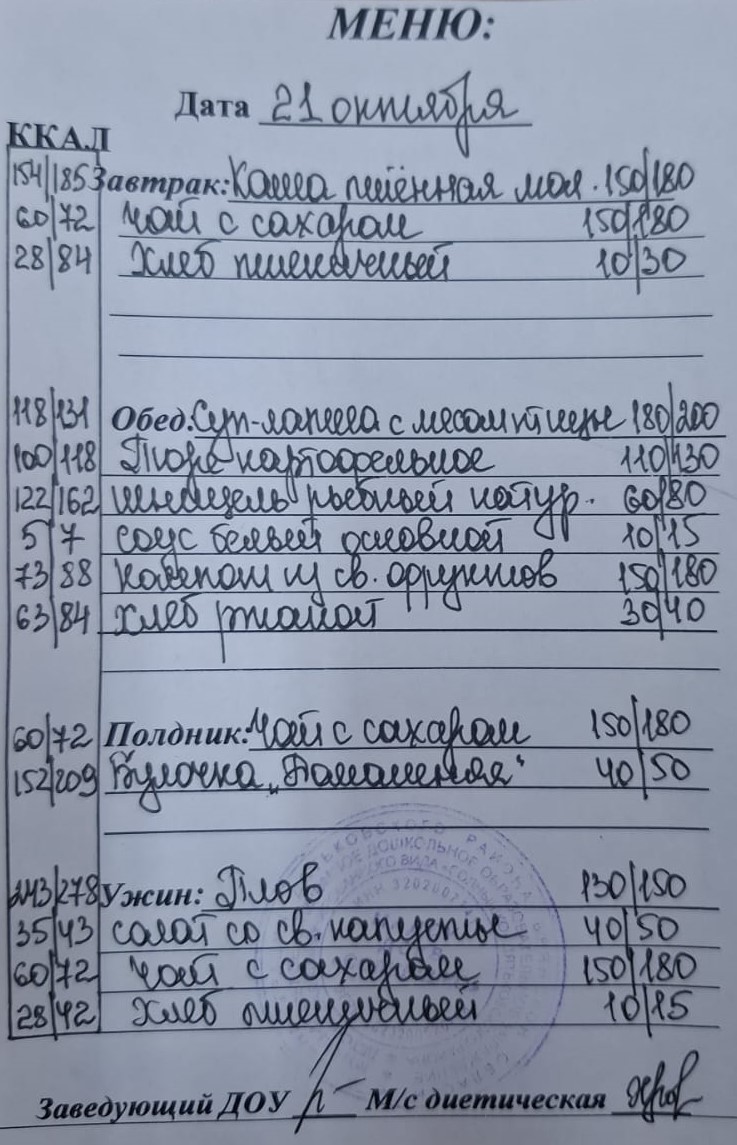 МЕНЮ:
Дата 21 октября
ККАЛ
154/185 Завтрак: Каша пшённая мол. 150/180
60/72 Чай с сахаром 150/180
28/84 Хлеб пшеничный 10/30
118/131 Обед: Суп-лапша с мясом птицы 180/200
100/118 Пюре картофельное 110/130
122/162 Шницель рыбный натур. 60/80
5/7 соус белый основной 10/15
73/88 компот из св. фруктов 150/180
63/84 Хлеб ржаной 30/40
60/72 Полдник: Чай с сахаром 150/180
152/209 Булочка „Домашняя" 40/50
243/278 Ужин: Плов 130/150
35/43 салат со св. капусты 40/50
60/72 Чай с сахаром 150/180
28/42 Хлеб пшеничный 10/15
Заведующий ДОУ М/с диетическая